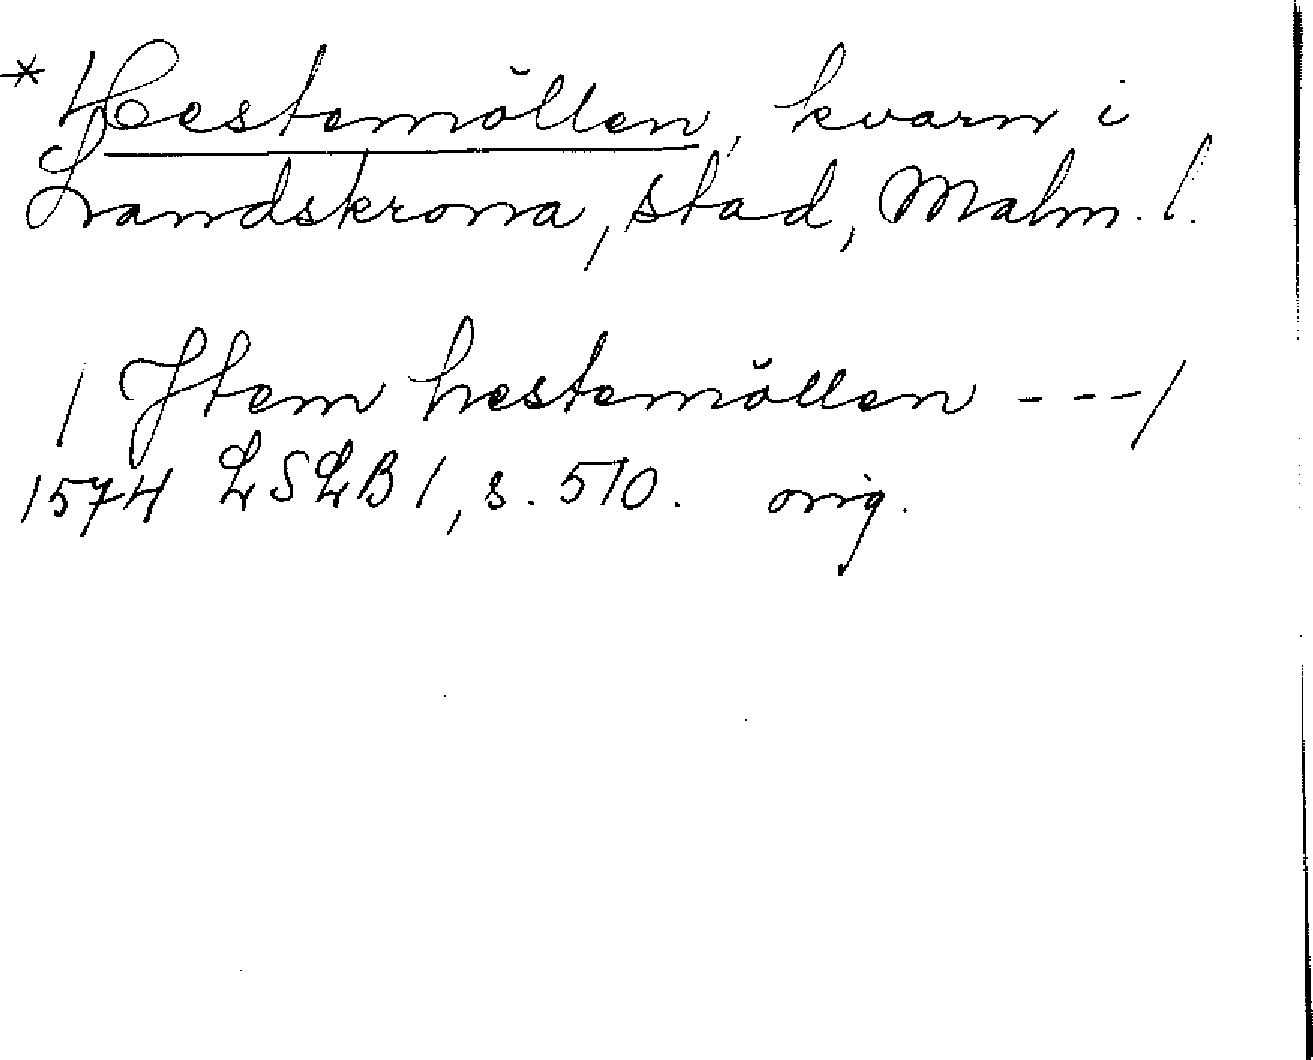 * Hestemöllen, kvarn i
Landskrona, stad, Malm. l.
/ Jtem hestemöllen --- /
1574 LSLB 1, s. 510. orig.